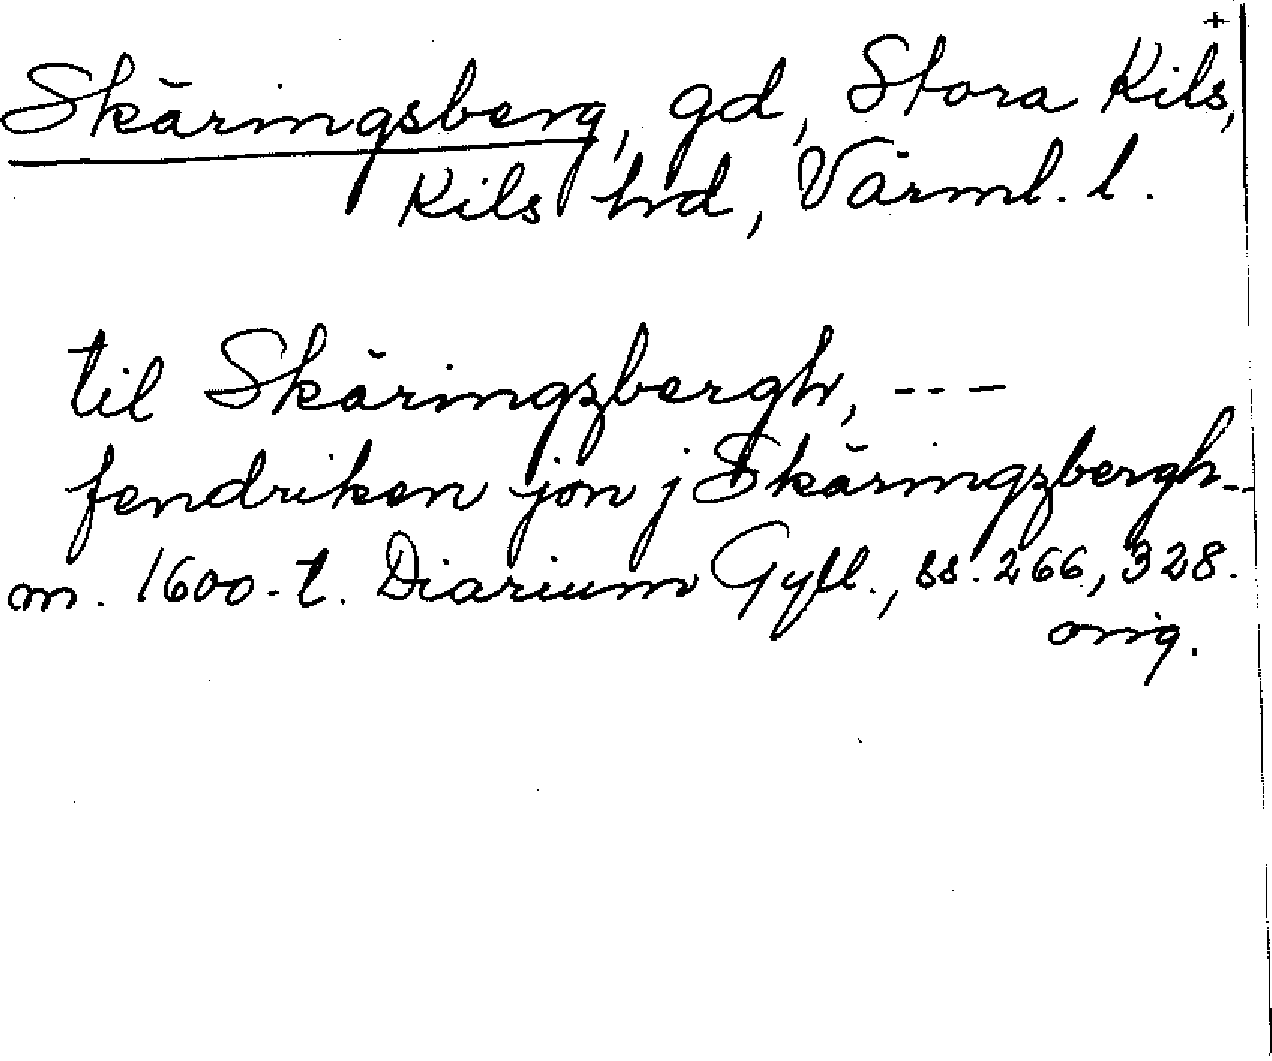 +
Skäringsberg, gd, Stora Kils,
Kils hd, Värml. l.
til Skäringzbergh, ---
fendriken jon j Skäringzbergh--
m. 1600-t. Diarium Gyll., ss. 266, 328.
orig.